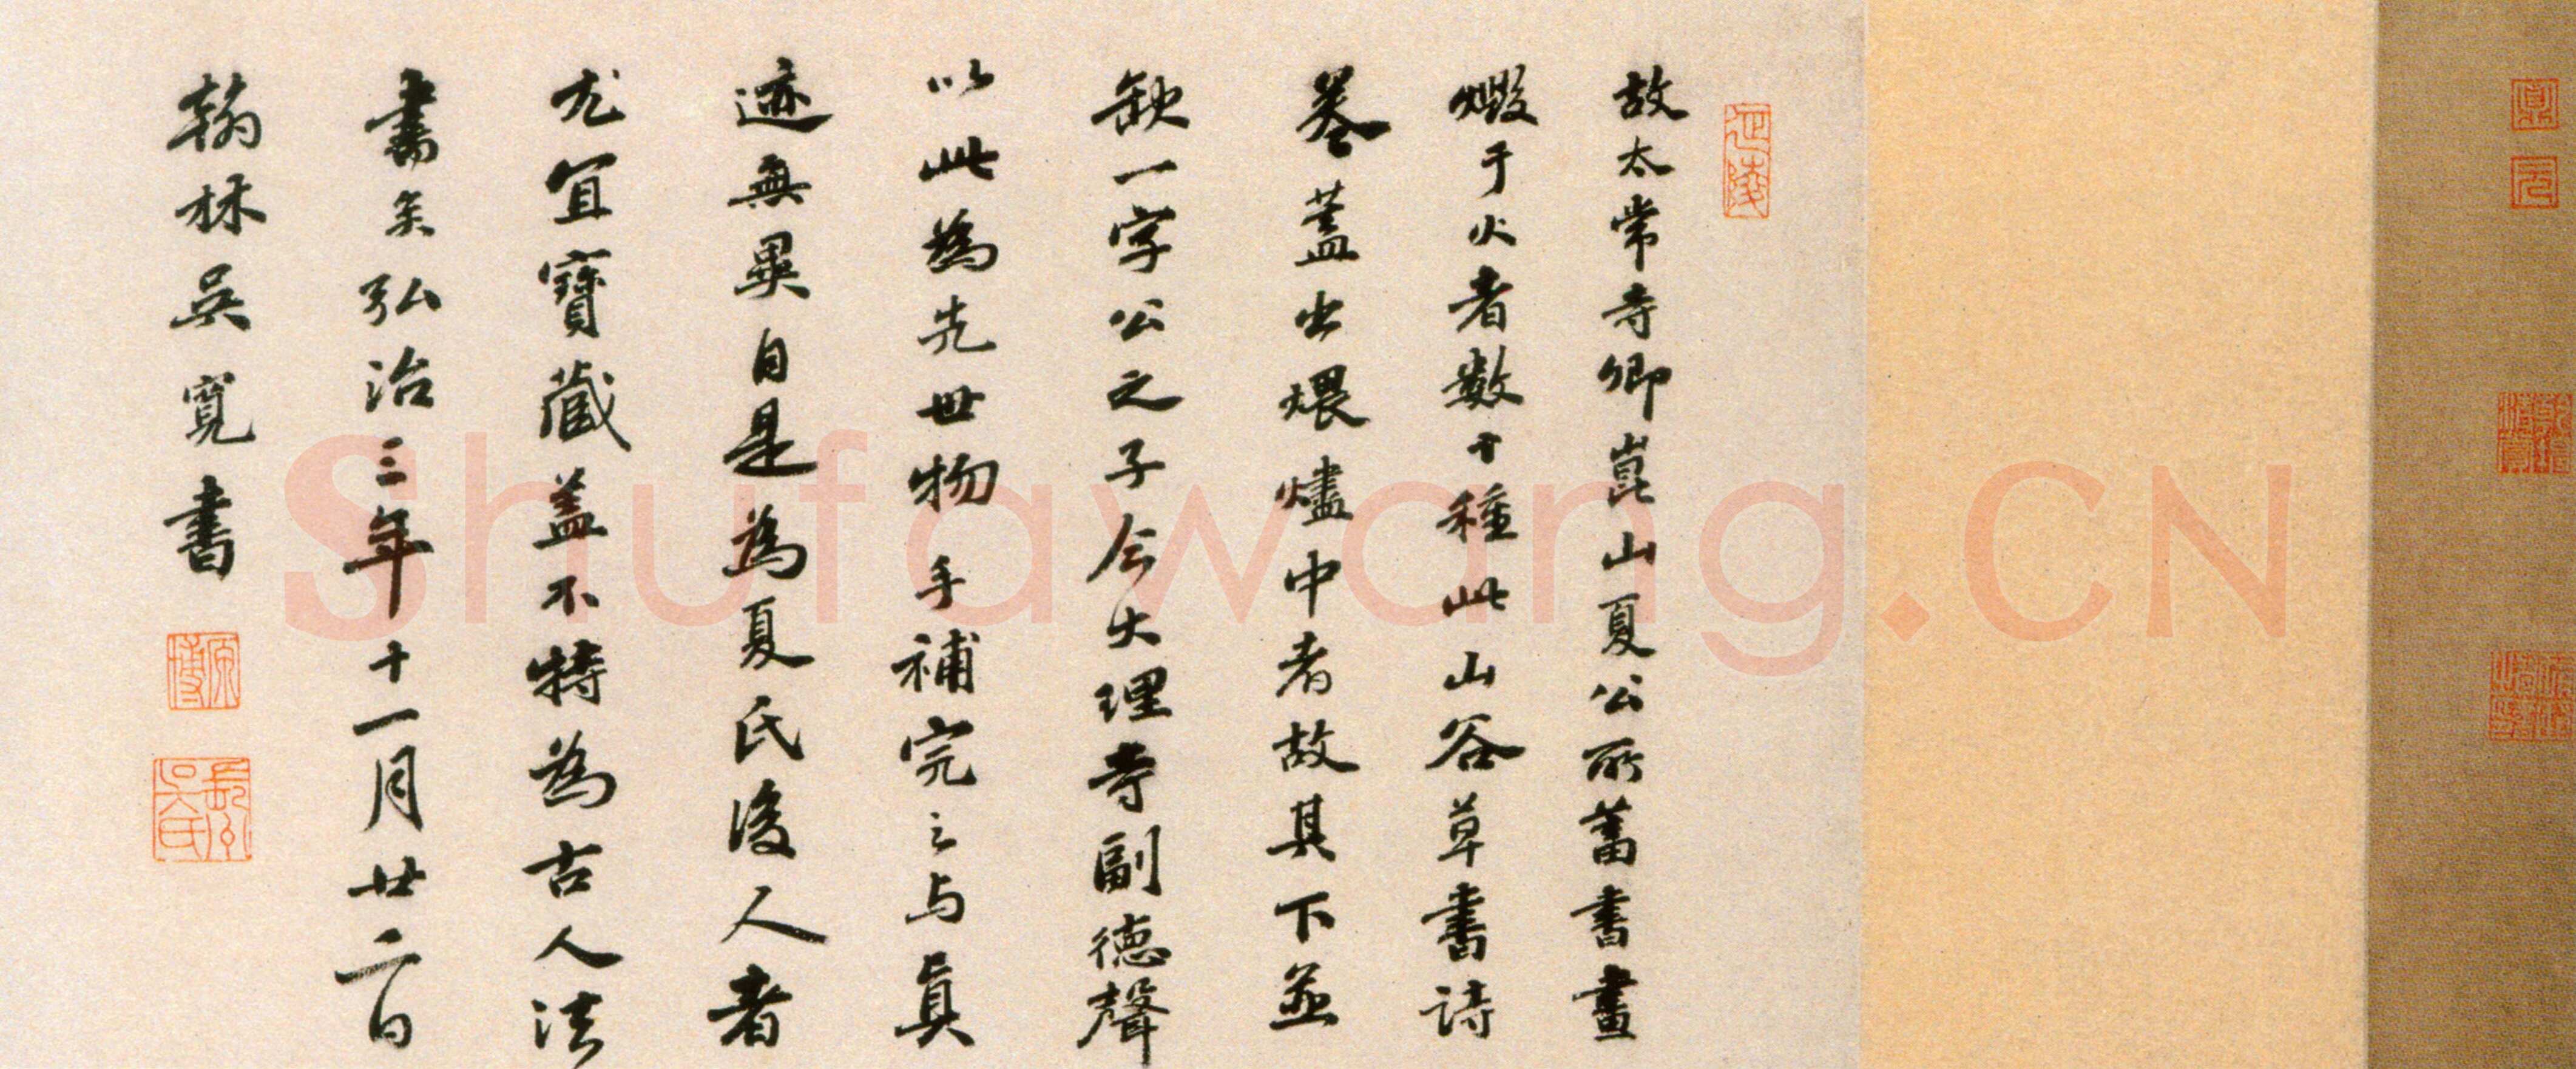 故太常寺卿崑山夏公所蓄書畫
燬于火者數十種此山谷草書詩
卷蓋出煨燼中者故其下並
缺一字公之子今大理寺副德聲
以此為先世物手補完之与真
迹無異自是為夏氏後人者
尤宜寶藏盖不特為古人法
書矣弘治三年十一月廿二日
翰林吳寬書
延陵
原博
Shufawang.CN